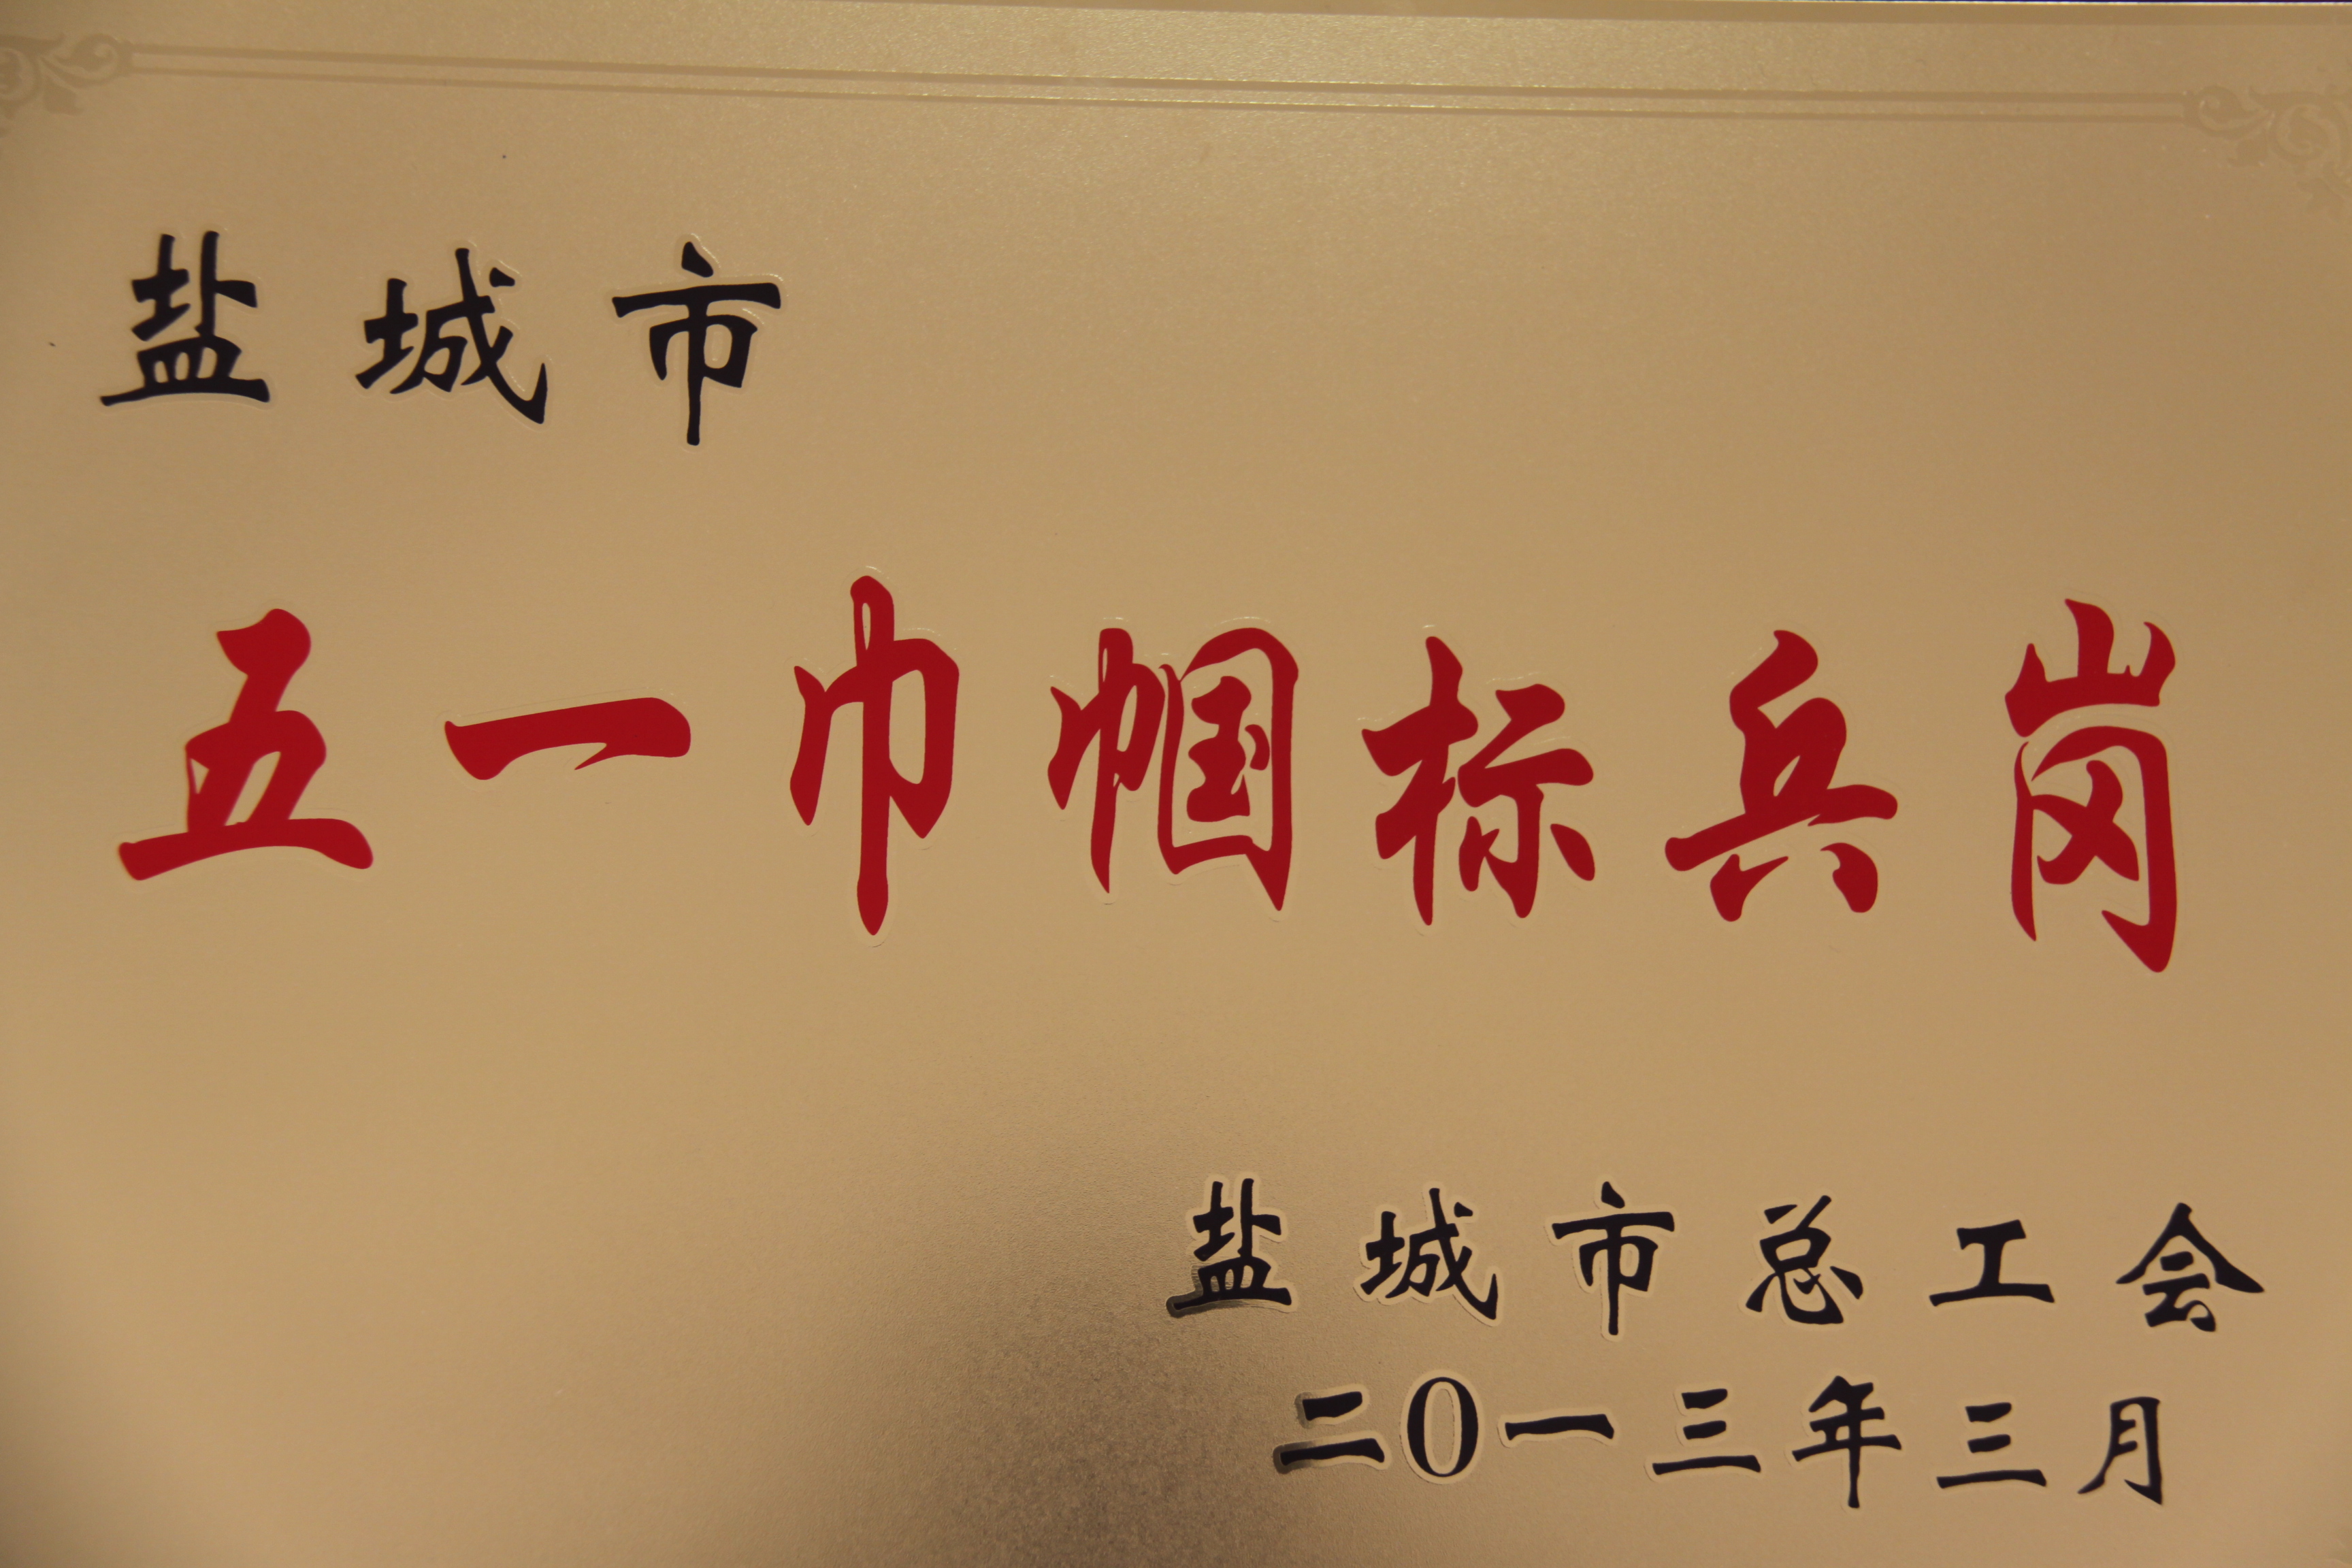 盐城市
五一巾帼标兵岗
盐城市总工会
二0一三年三月